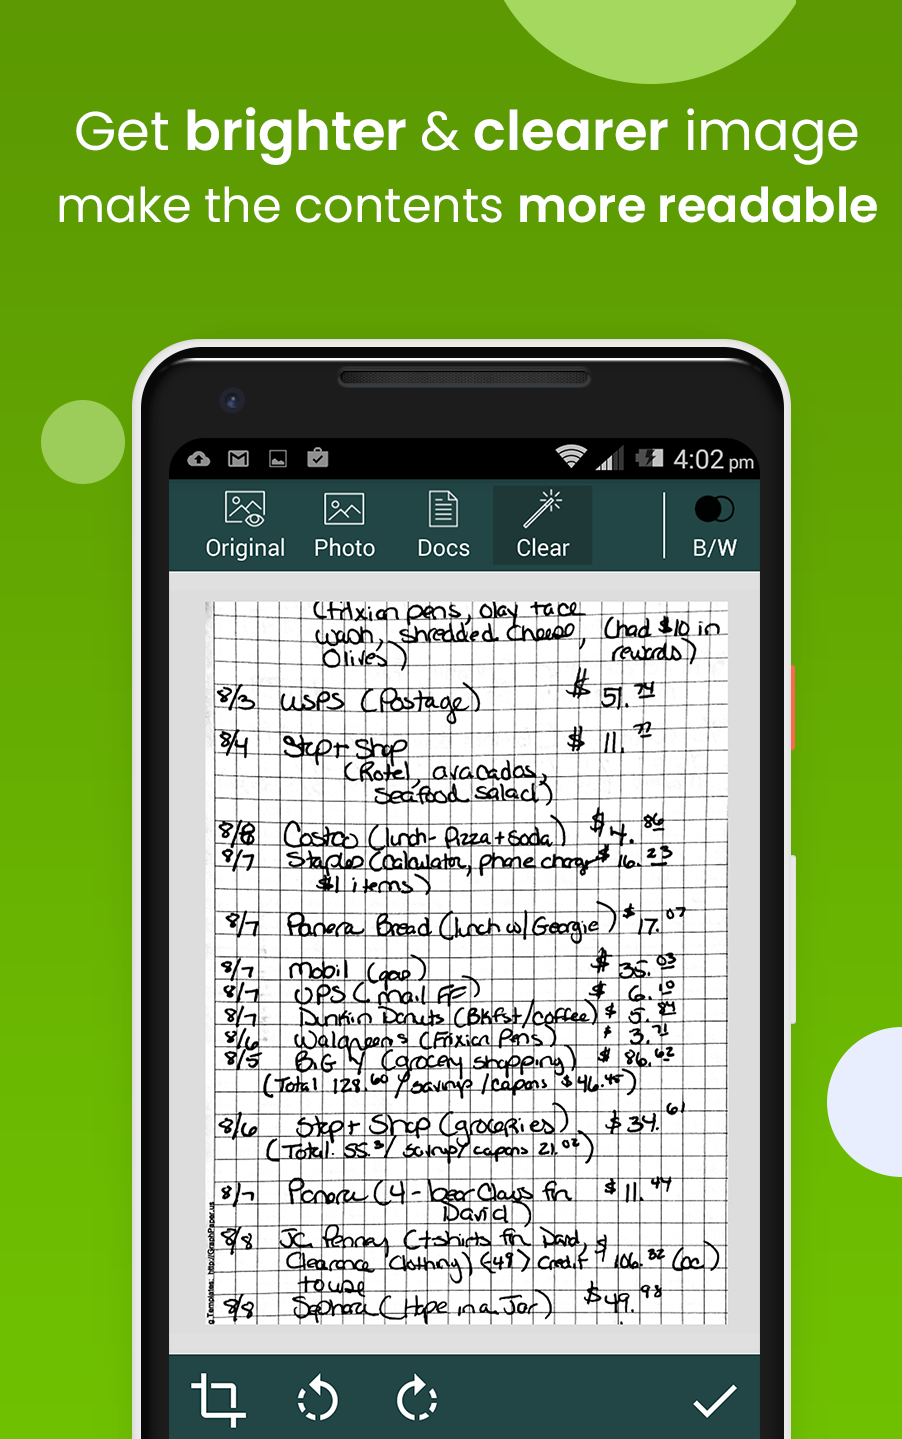 Get brighter & clearer image
make the contents more readable
4:02 pm
Original Photo Docs Clear B/W
(frixion pens, olay face
wash, shredded cheese, (had $10 in
Olives) rewards)
8/3 USPS (Postage) $ 51.74
8/4 Stop + Shop $ 11.77
(Rotel, avacados,
seafood salad)
8/8 Costco (lunch- Pizza + Soda) $ 4.86
8/7 Staples (calculator, phone charger $ 16.23
$1 items)
8/7 Panera Bread (lunch w/ Georgie) $ 17.07
8/7 Mobil (gas) $ 35.03
8/7 UPS (mail FF) $ 6.10
8/7 Dunkin Donuts (Bkfst/coffee) $ 5.84
8/6 Walgreens (Frixion Pens) $ 3.71
8/5 Big Y (grocery shopping) $ 86.62
(Total 128.60 / savings /capons $46.45)
8/6 Stop + Shop (groceries) $ 34.61
(Total: 55. / savings/ capons 21.02)
8/7 Panera (4 - bear Claws for $ 11.44
David)
8/8 JC Penney (t-shirts for David, $
Clearance Clothing) (-49) Credit 106.32 (cc)
to use
8/8 Sephora (Hope in a Jar) $49.98
Templates: http://GraphPaper.us